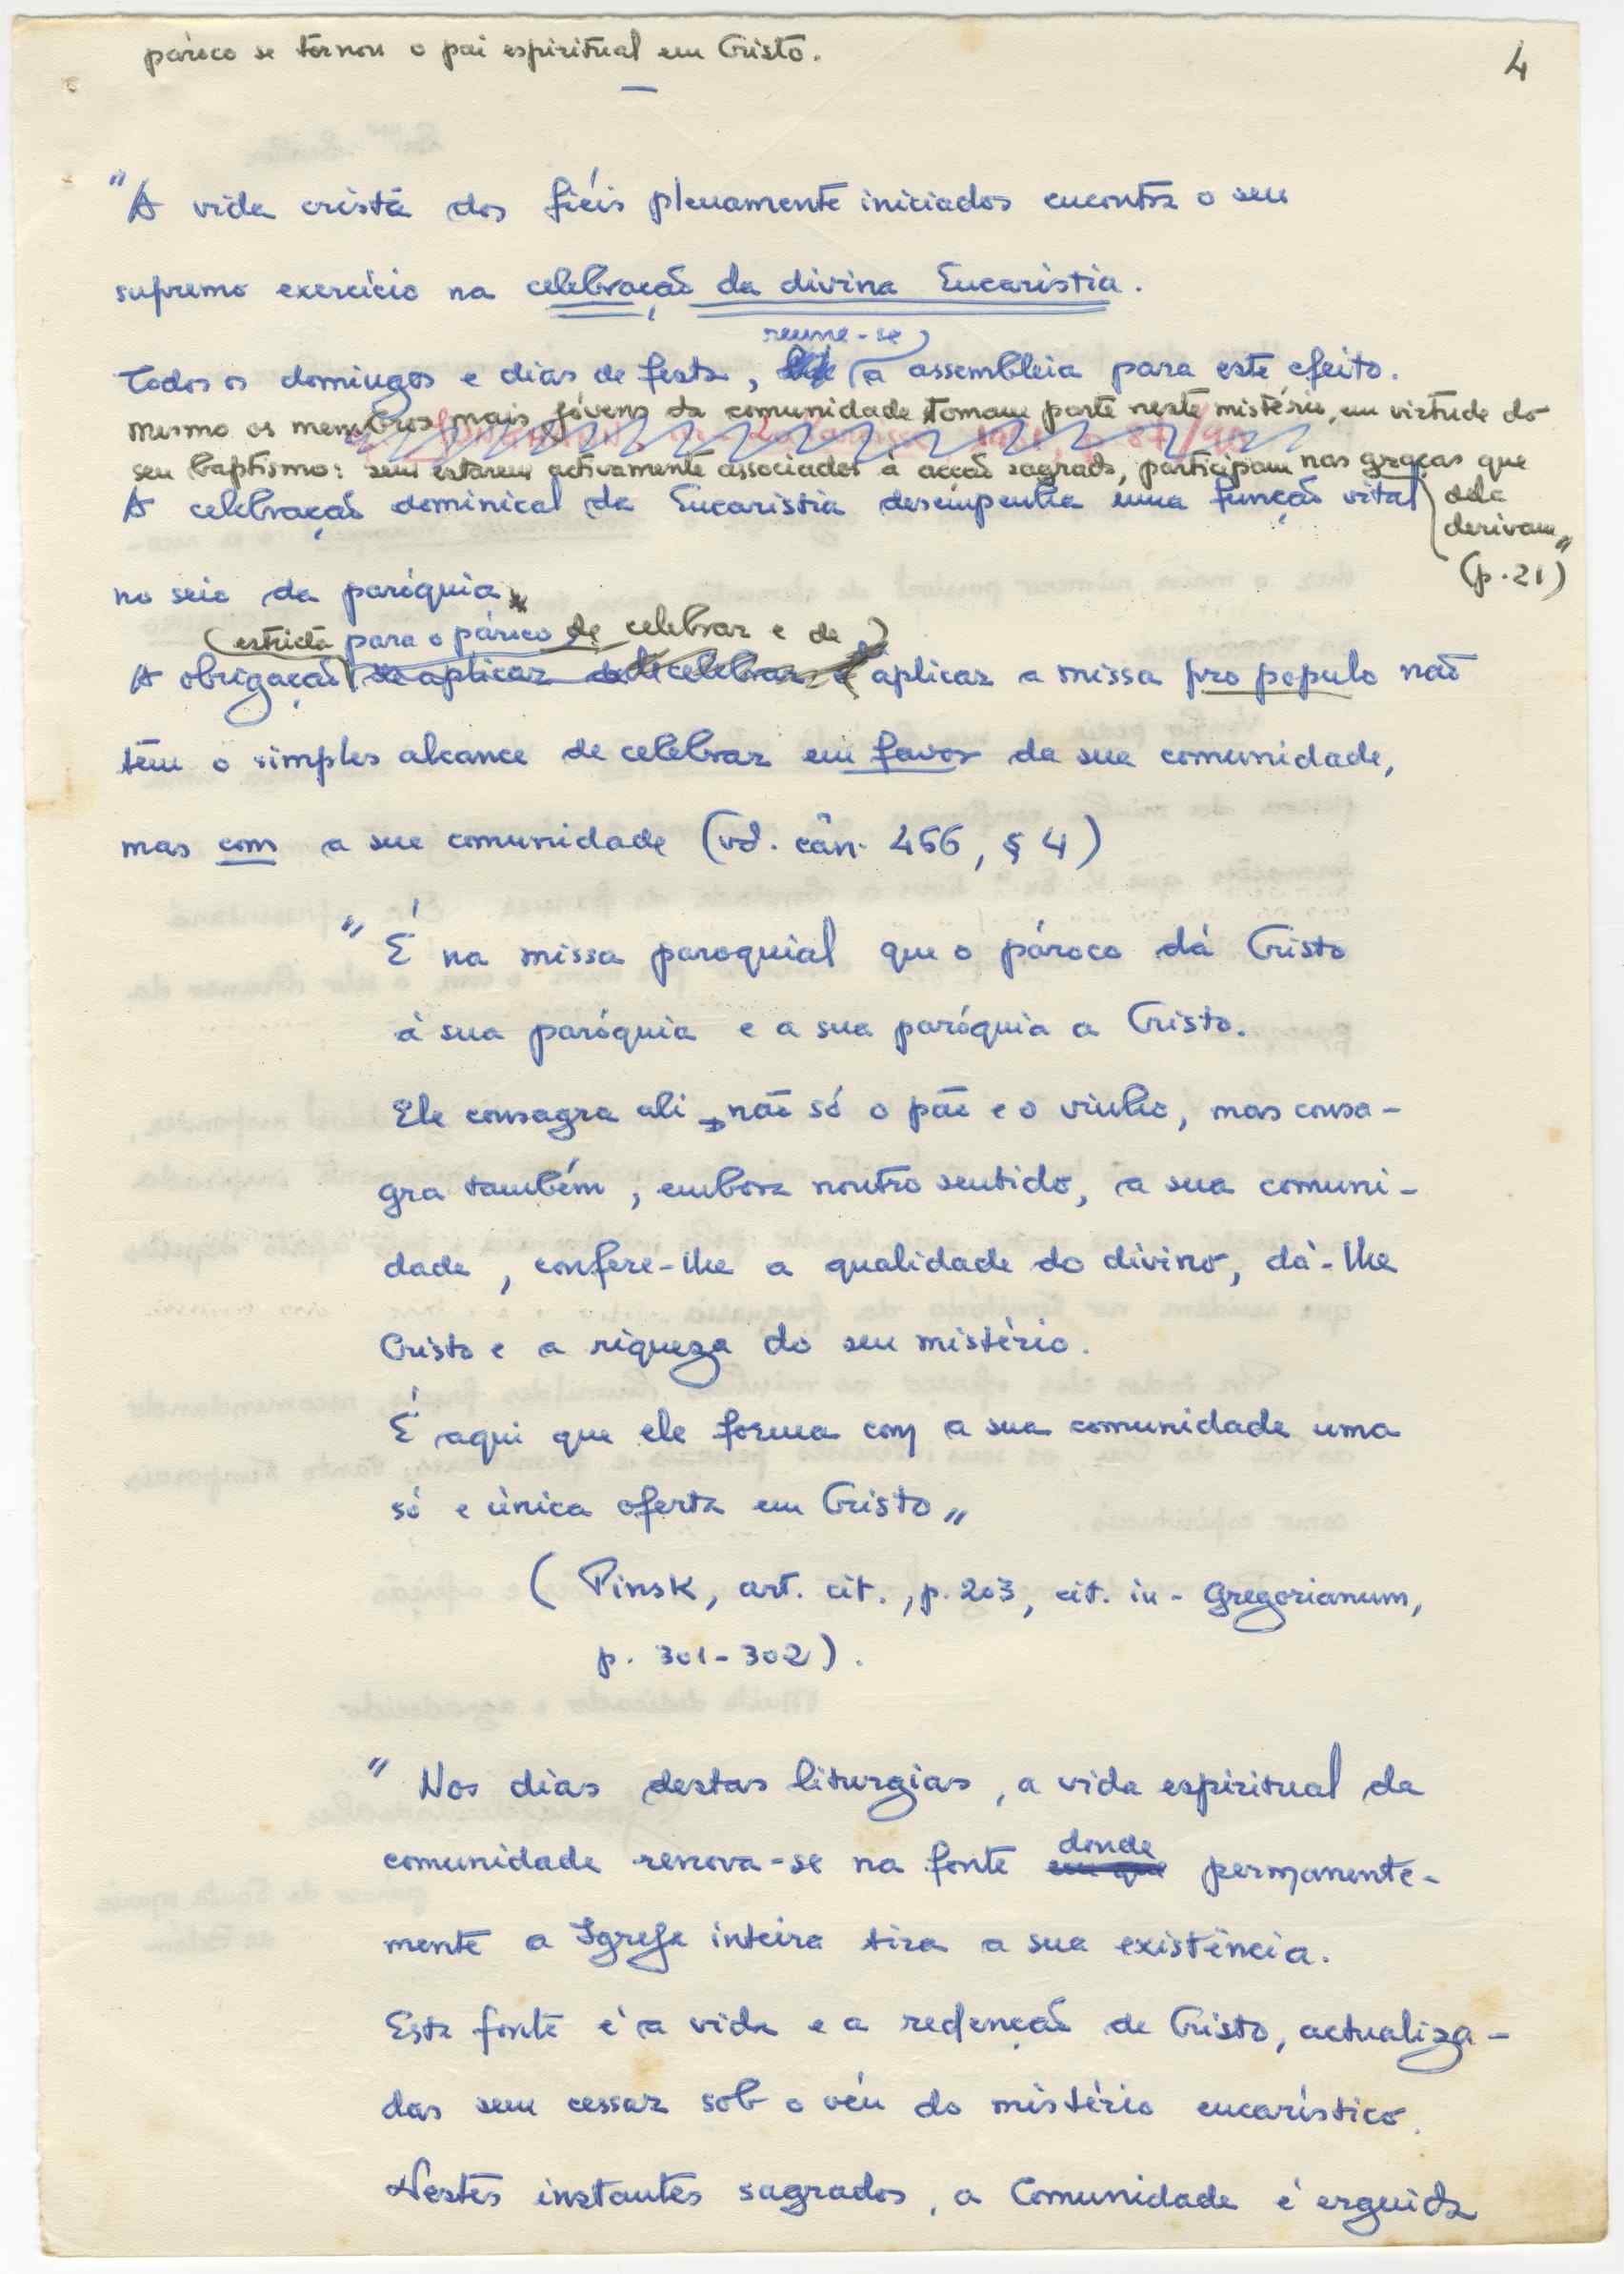 pároco se tornou o pai espiritual em Cristo.
4
"A vida cristã dos fiéis plenamente iniciados encontra o seu
supremo exercício na celebração da divina Eucaristia.
reune-se
Todos os domingos e dias de festa, a assembleia para este efeito.
mesmo os membros mais jóvens da comunidade tomam parte neste mistério, em virtude do
seu baptismo: sem estarem activamente associados à acção sagrada, participam nas graças que
dela
derivam"
(p.21)
A celebração dominical da Eucaristia desempenha uma função vital
no seio da paróquia
(estricta para o pároco de celebrar e de)
A obrigação de aplicar celebrar e aplicar a missa pro populo não
têm o simples alcance de celebrar em favor da sua comunidade,
mas com a sua comunidade (vd. cân. 466, § 4)
"É na missa paroquial que o pároco dá Cristo
à sua paróquia e a sua paróquia a Cristo.
Ele consagra ali não só o pão e o vinho, mas consa-
gra também, embora noutro sentido, a sua comuni-
dade, confere-lhe a qualidade do divino, dá-lhe
Cristo e a riqueza do seu mistério.
É aqui que ele forma com a sua comunidade uma
só e única oferta em Cristo"
(Pinsk, art. cit., p.203, cit. in - Gregorianum,
p. 301-302).
"Nos dias destas liturgias, a vida espiritual da
donde
comunidade renova-se na fonte em que permanente-
mente a Igreja inteira tira a sua existência.
Esta fonte é a vida e a redenção de Cristo, actualiza-
das sem cessar sob o véu do mistério eucarístico.
Nestes instantes sagrados, a Comunidade é erguida